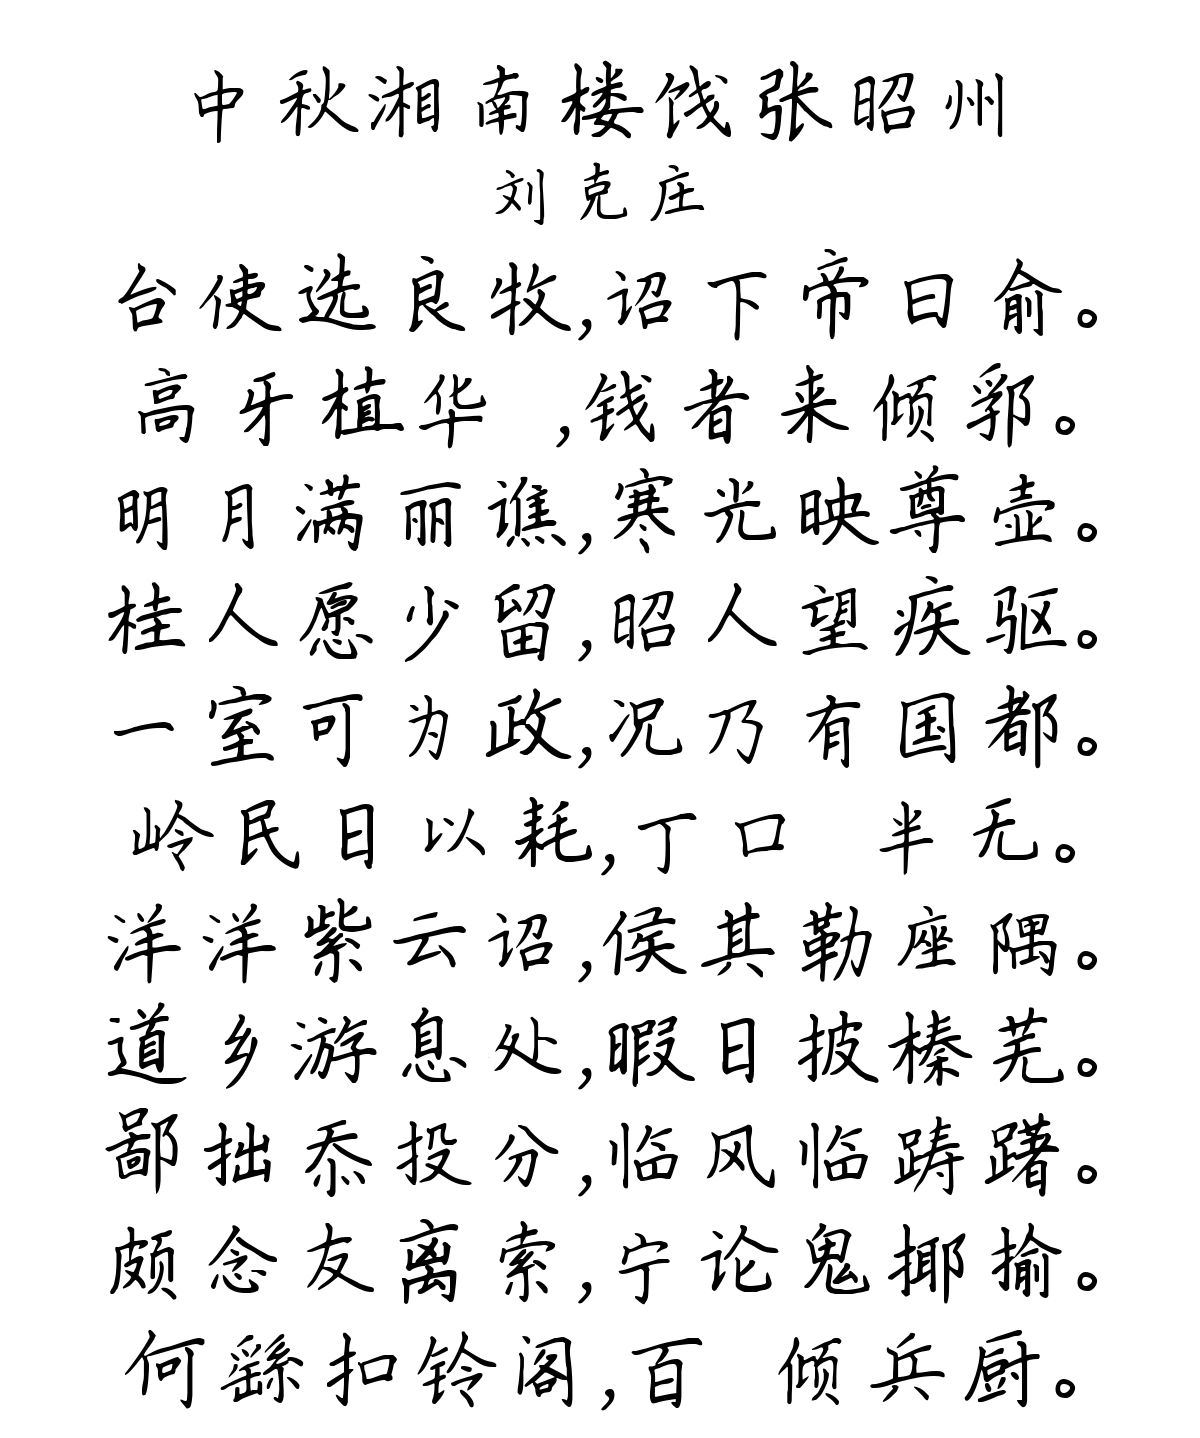 中秋湘南楼饯张昭州
刘克庄
台使选良牧,诏下帝曰俞。
高牙植华 ,钱者来倾郛。
明月满丽谯,寒光映尊壶。
桂人愿少留,昭人望疾驱。
一室可为政,况乃有国都。
岭民日以耗,丁口 半无。
洋洋紫云诏,侯其勒座隅。
道乡游息处,暇日披榛芜。
鄙拙忝投分,临风临踌躇。
颇念友离索,宁论鬼揶揄。
何繇扣铃阁,百 倾兵厨。